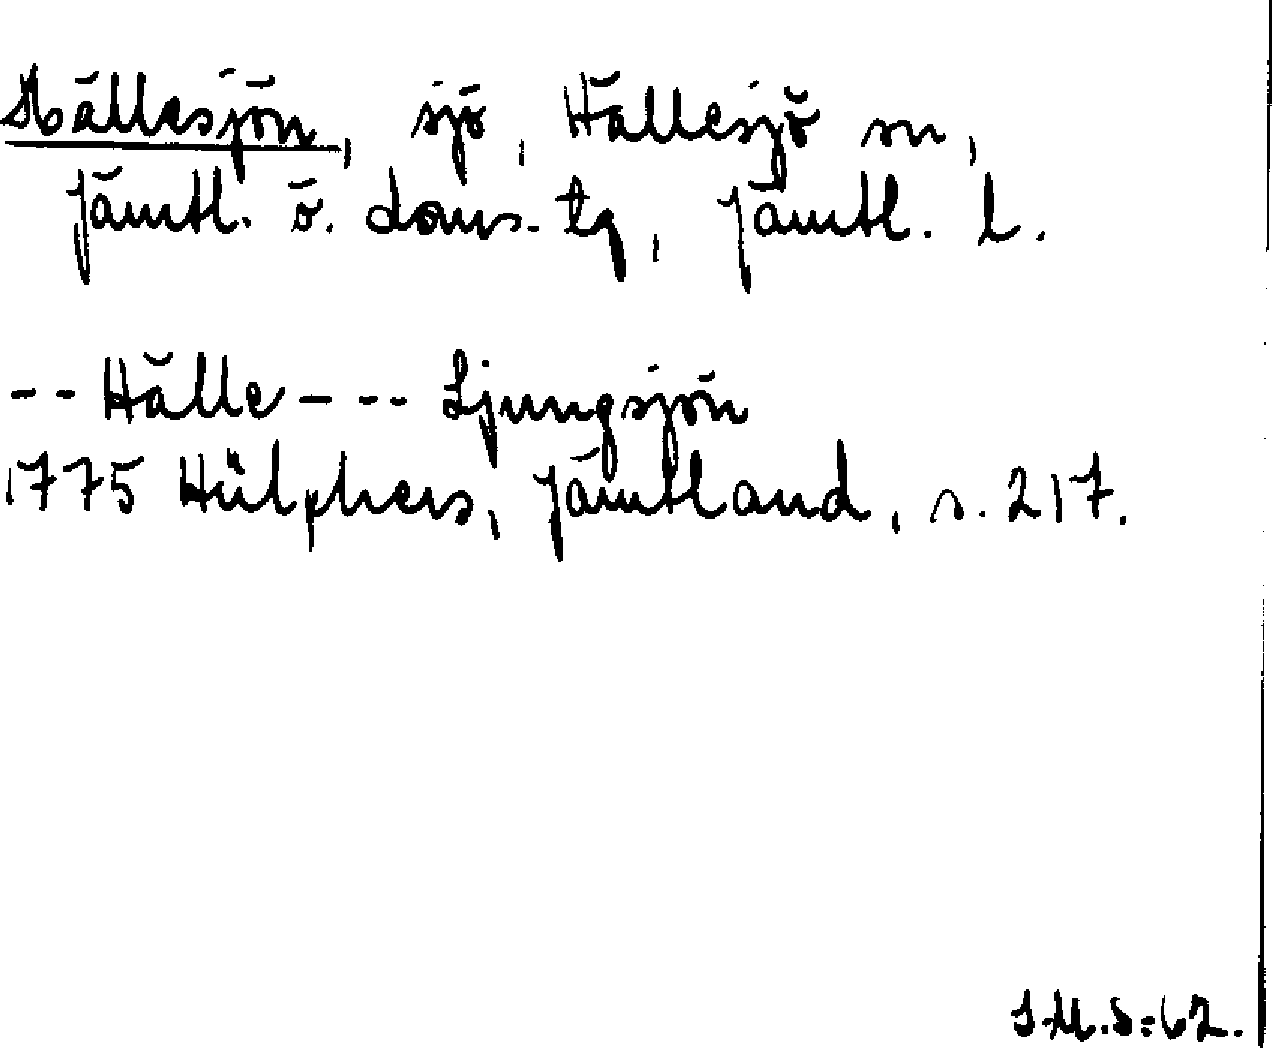 Hällesjön, sjö, Hällesjö sn,
Jämtl. ö. doms. tg, Jämtl. l.
-- Hälle - -- Ljungsjön
1775 Hülphers, Jämtland, s. 217.